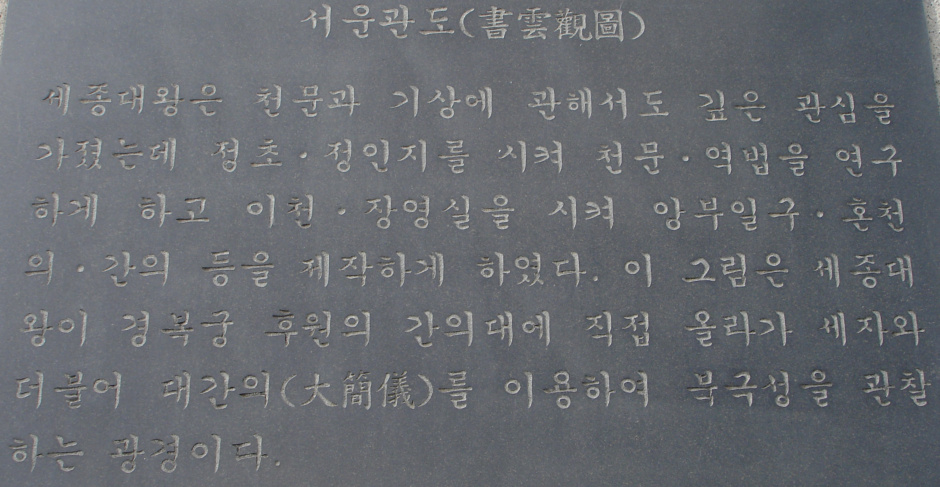 서운관도(書雲觀圖)
세종대왕은 천문과 기상에 관해서도 깊은 관심을
가졌는데 정초·정인지를 시켜 천문·역법을 연구
하게 하고 이천·장영실을 시켜 앙부일구·혼천
의·간의 등을 제작하게 하였다. 이 그림은 세종대
왕이 경복궁 후원의 간의대에 직접 올라가 세자와
더불어 대간의(大簡儀)를 이용하여 북극성을 관찰
하는 광경이다.